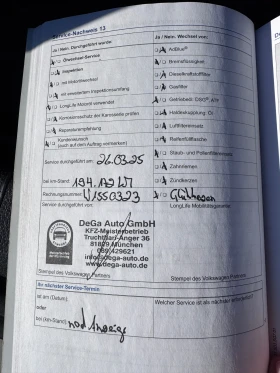 Service-Nachweis 13
Ja / Nein: Durchgeführt wurde:
Ja / Nein: Wechsel von:
Ölwechsel-Service
AdBlue®
Inspektion
Bremsflüssigkeit
mit Mobilitätscheck
Dieselkraftstofffilter
mit erweitertem Inspektionsumfang
Gasfilter
LongLife Motoröl verwendet
Getriebeöl: DSG®, ATF
Korrosionsschutz der Karosserie prüfen
Haldexkupplung: Öl
Reparaturempfehlung
Luftfiltereinsatz
Kundenwunsch
(auch auf dem Auftrag vermerken)
Reifenfüllflasche
Staub- und Pollenfiltereinsatz
Service durchgeführt am: 26.03.25
Zahnriemen
Zündkerzen
bei km-Stand:
Rechnungsnummer:
Service durchgeführt von:
LongLife Mobilitätsgarantie
DeGa Auto GmbH
KFZ-Meisterbetrieb
Truchthari-Anger 36
81829 München
089 429621
info@dega-auto.de
www.dega-auto.de
Stempel des Volkswagen Partners
Stempel des Volkswagen Partners
Ihr nächster Service-Termin:
ist am (Datum):
Welcher Service ist als nächster
oder
bei (km-Stand): nach Anzeige